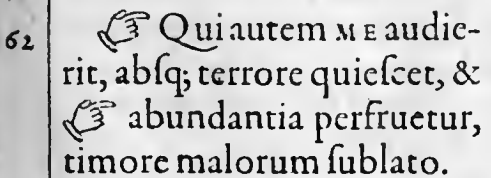 62 ☞ Qui autem ME audie-
rit, abſq; terrore quieſcet, &
☞ abundantia perfruetur,
timore malorum ſublato.